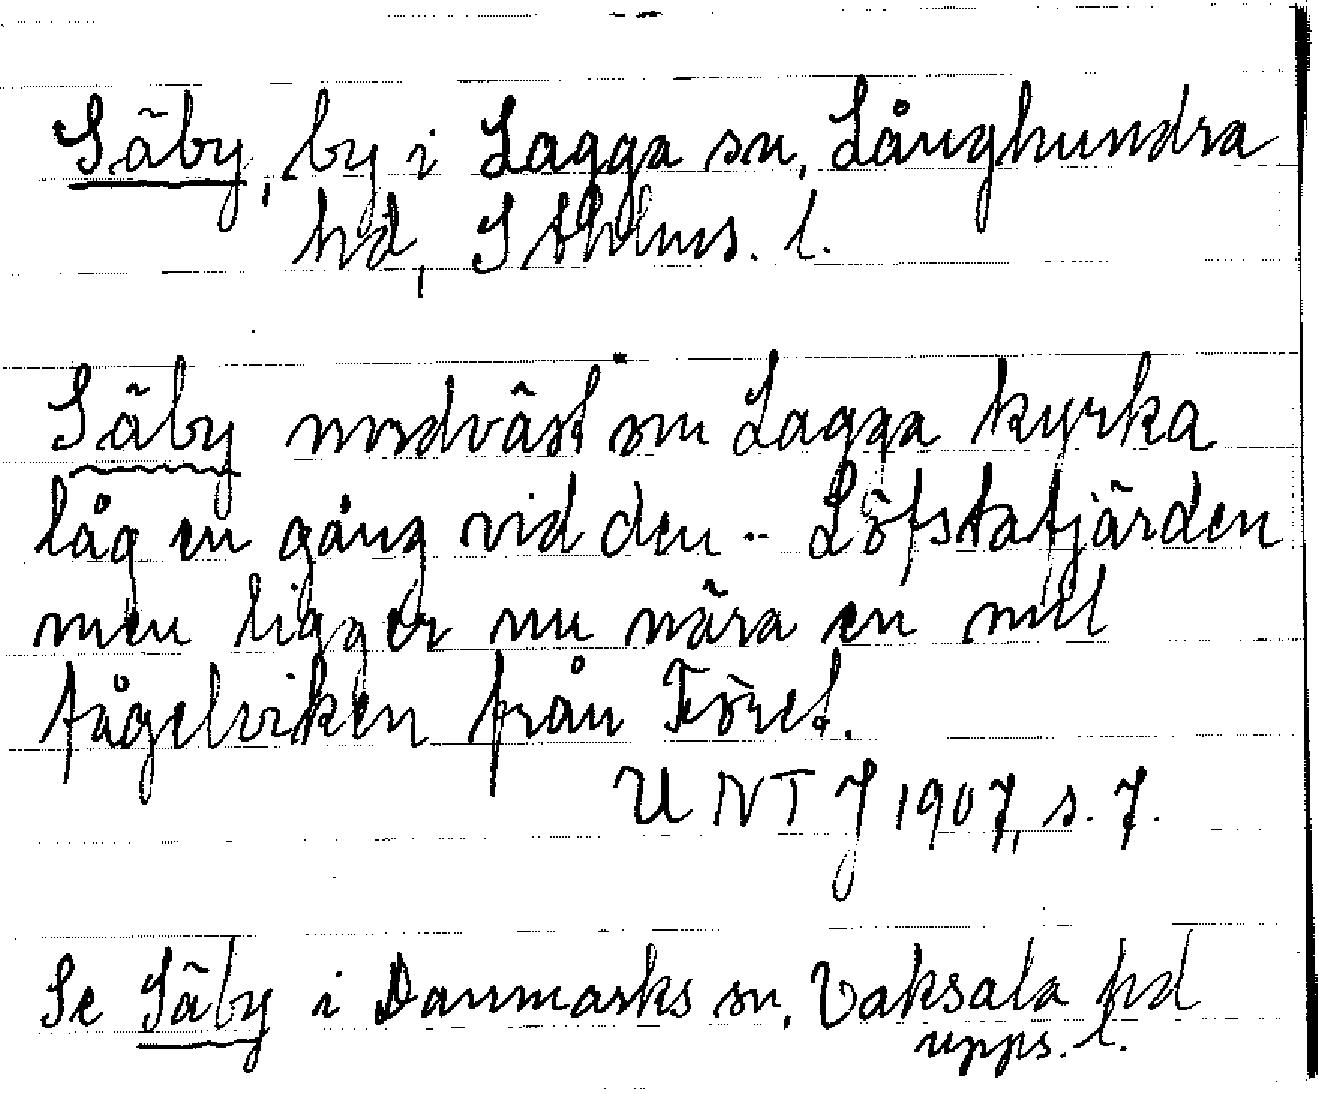 Säby, by i Lagga sn, Långhundra
hd, Sthlms. l.
Säby nordväst om Lagga kyrka
låg en gång vid den .. Löfstafjärden
men ligger nu nära en mil
fågelviken från Föret.
UNT J 1907, s. 7.
Se Säby i Danmarks sn, Vaksala hd
Upps. l.